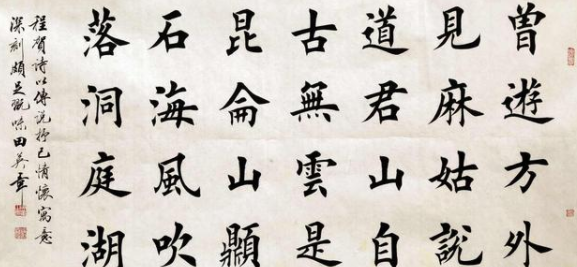 曾遊方外
見麻姑說
道君山自
古無雲是
昆侖山顛
石海風吹
落洞庭湖
程賀詩以傳說抒己情懷寓意
深刻頗足翫味田英章